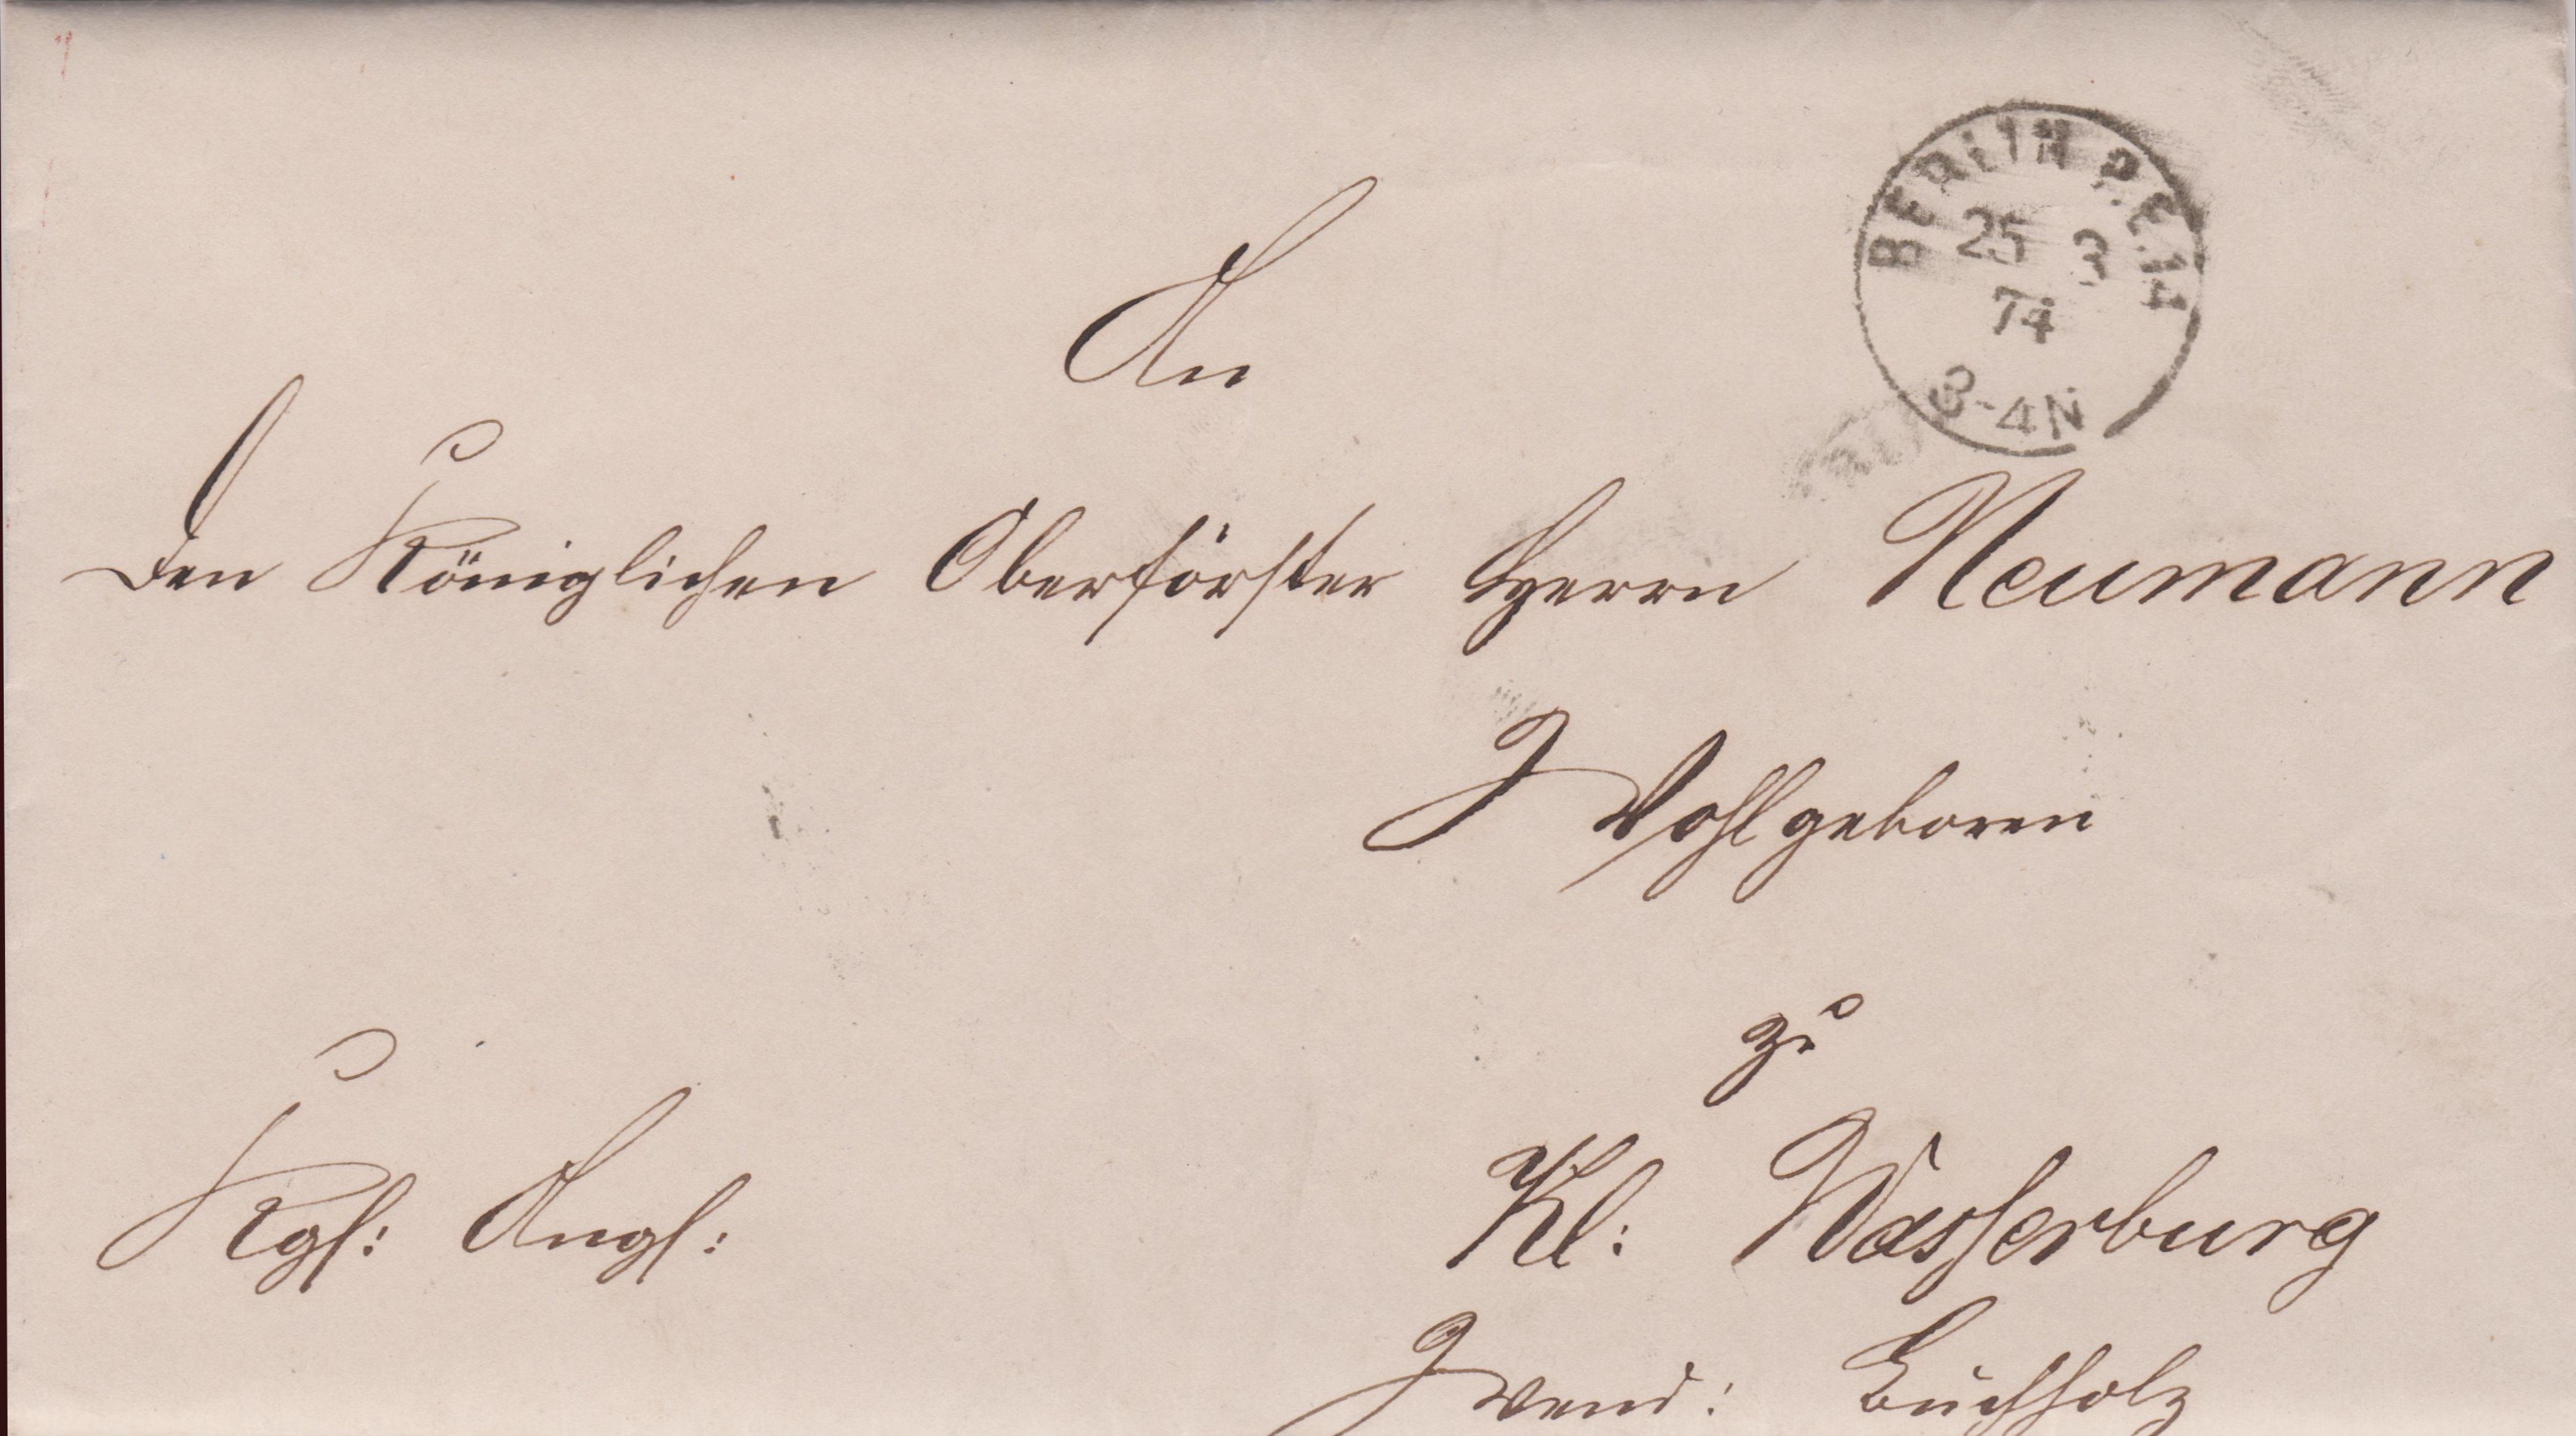 BERLIN P.E.14
25 3
74
3-4N
An
Den Königlichen Oberförster Herrn Neumann
Wohlgeboren
zu
Kgl: Angl: Kl: Wasserburg
Wend: Buchholz